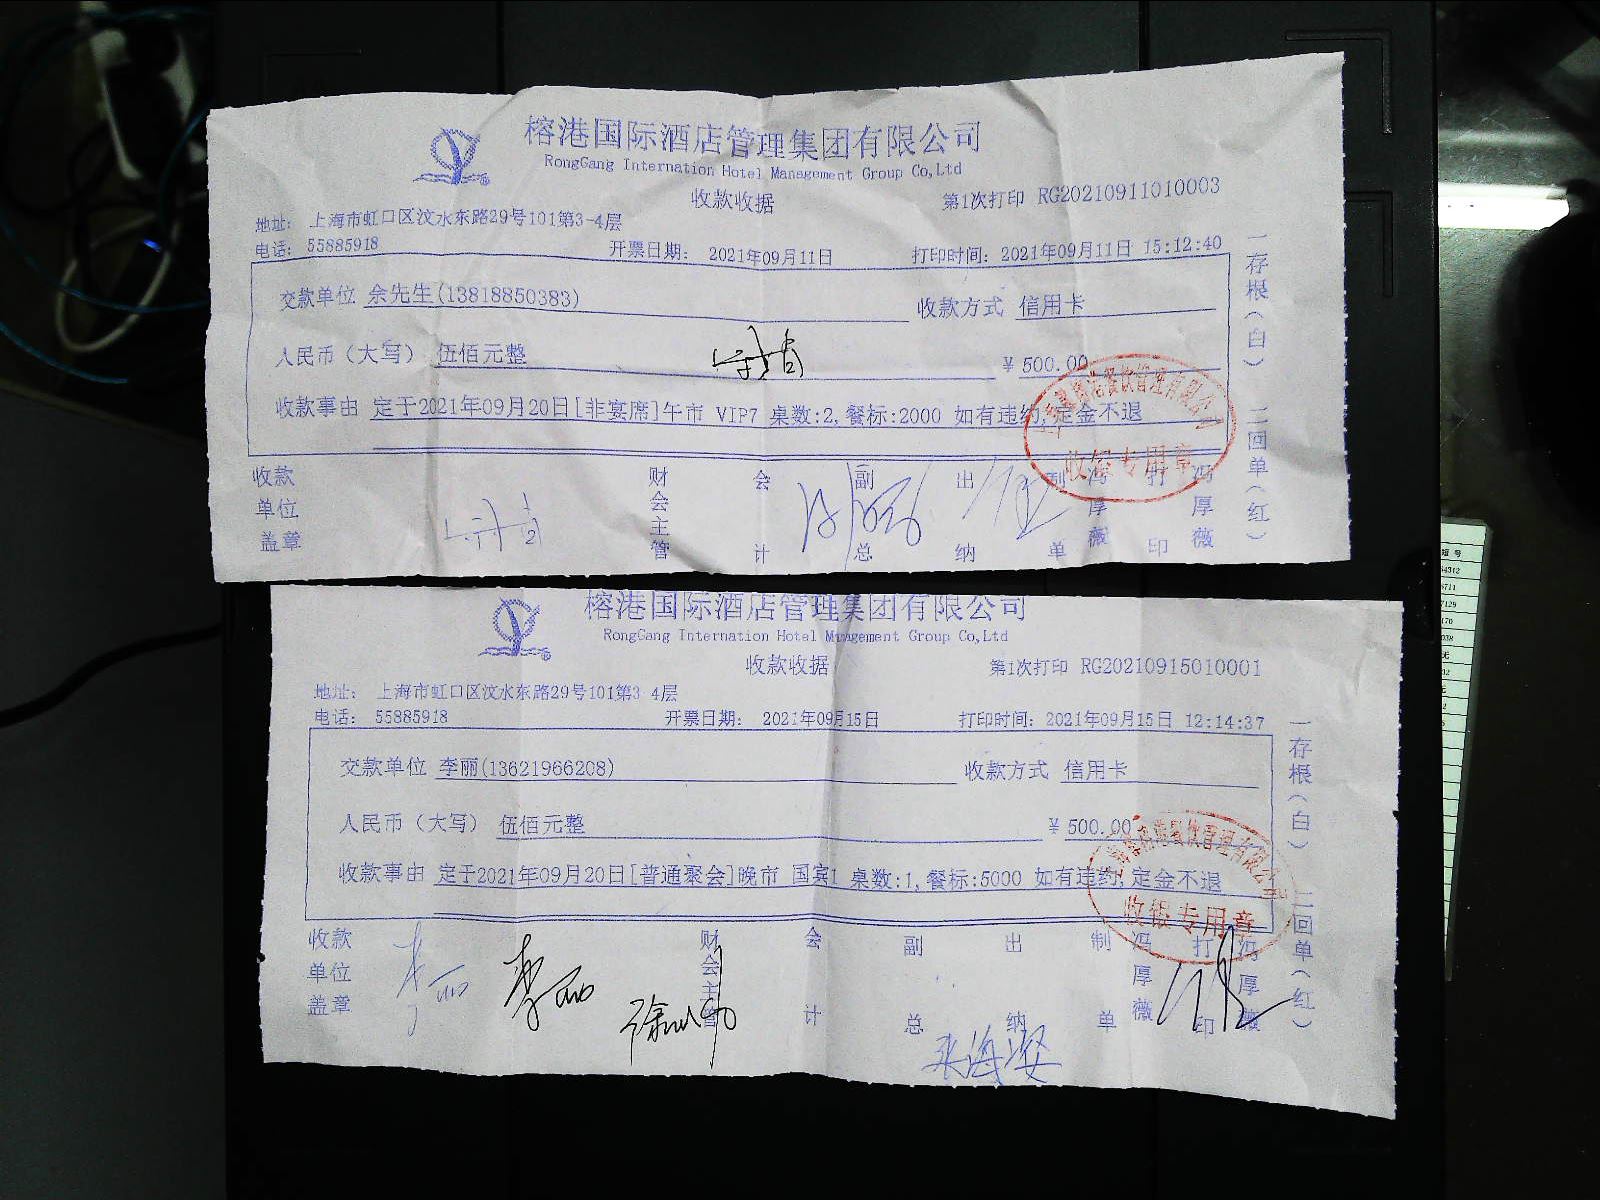 榕港国际酒店管理集团有限公司
RongGang International Hotel Management Group Co,Ltd
收款收据
第1次打印 RG20210911010003
地址: 上海市虹口区汶水东路29号101第3-4层
电话: 55885918 开票日期: 2021年09月11日 打印时间: 2021年09月11日 15:12:40
交款单位 余先生(13818850383) 收款方式 信用卡
人民币（大写） 伍佰元整 ¥500.00
收款事由 定于2021年09月20日[非宴席]午市 VIP7 桌数:2,餐标:2000 如有违约,定金不退
收银专用章
收款单位盖章 财会主管 会计 副总 出纳 制单 冯厚薇 打印 冯厚薇
一存根（白） 二回单（红）
榕港国际酒店管理集团有限公司
RongGang International Hotel Management Group Co,Ltd
收款收据
第1次打印 RG20210915010001
地址: 上海市虹口区汶水东路29号101第3 4层
电话: 55885918 开票日期: 2021年09月15日 打印时间: 2021年09月15日 12:14:37
交款单位 李丽(13621966208) 收款方式 信用卡
人民币（大写） 伍佰元整 ¥500.00
收款事由 定于2021年09月20日[普通聚会]晚市 国宾1 桌数:1,餐标:5000 如有违约,定金不退
收银专用章
收款单位盖章 财会主管 会计 副总 出纳 制单 冯厚薇 打印 冯厚薇
李丽 李丽
一存根（白） 二回单（红）